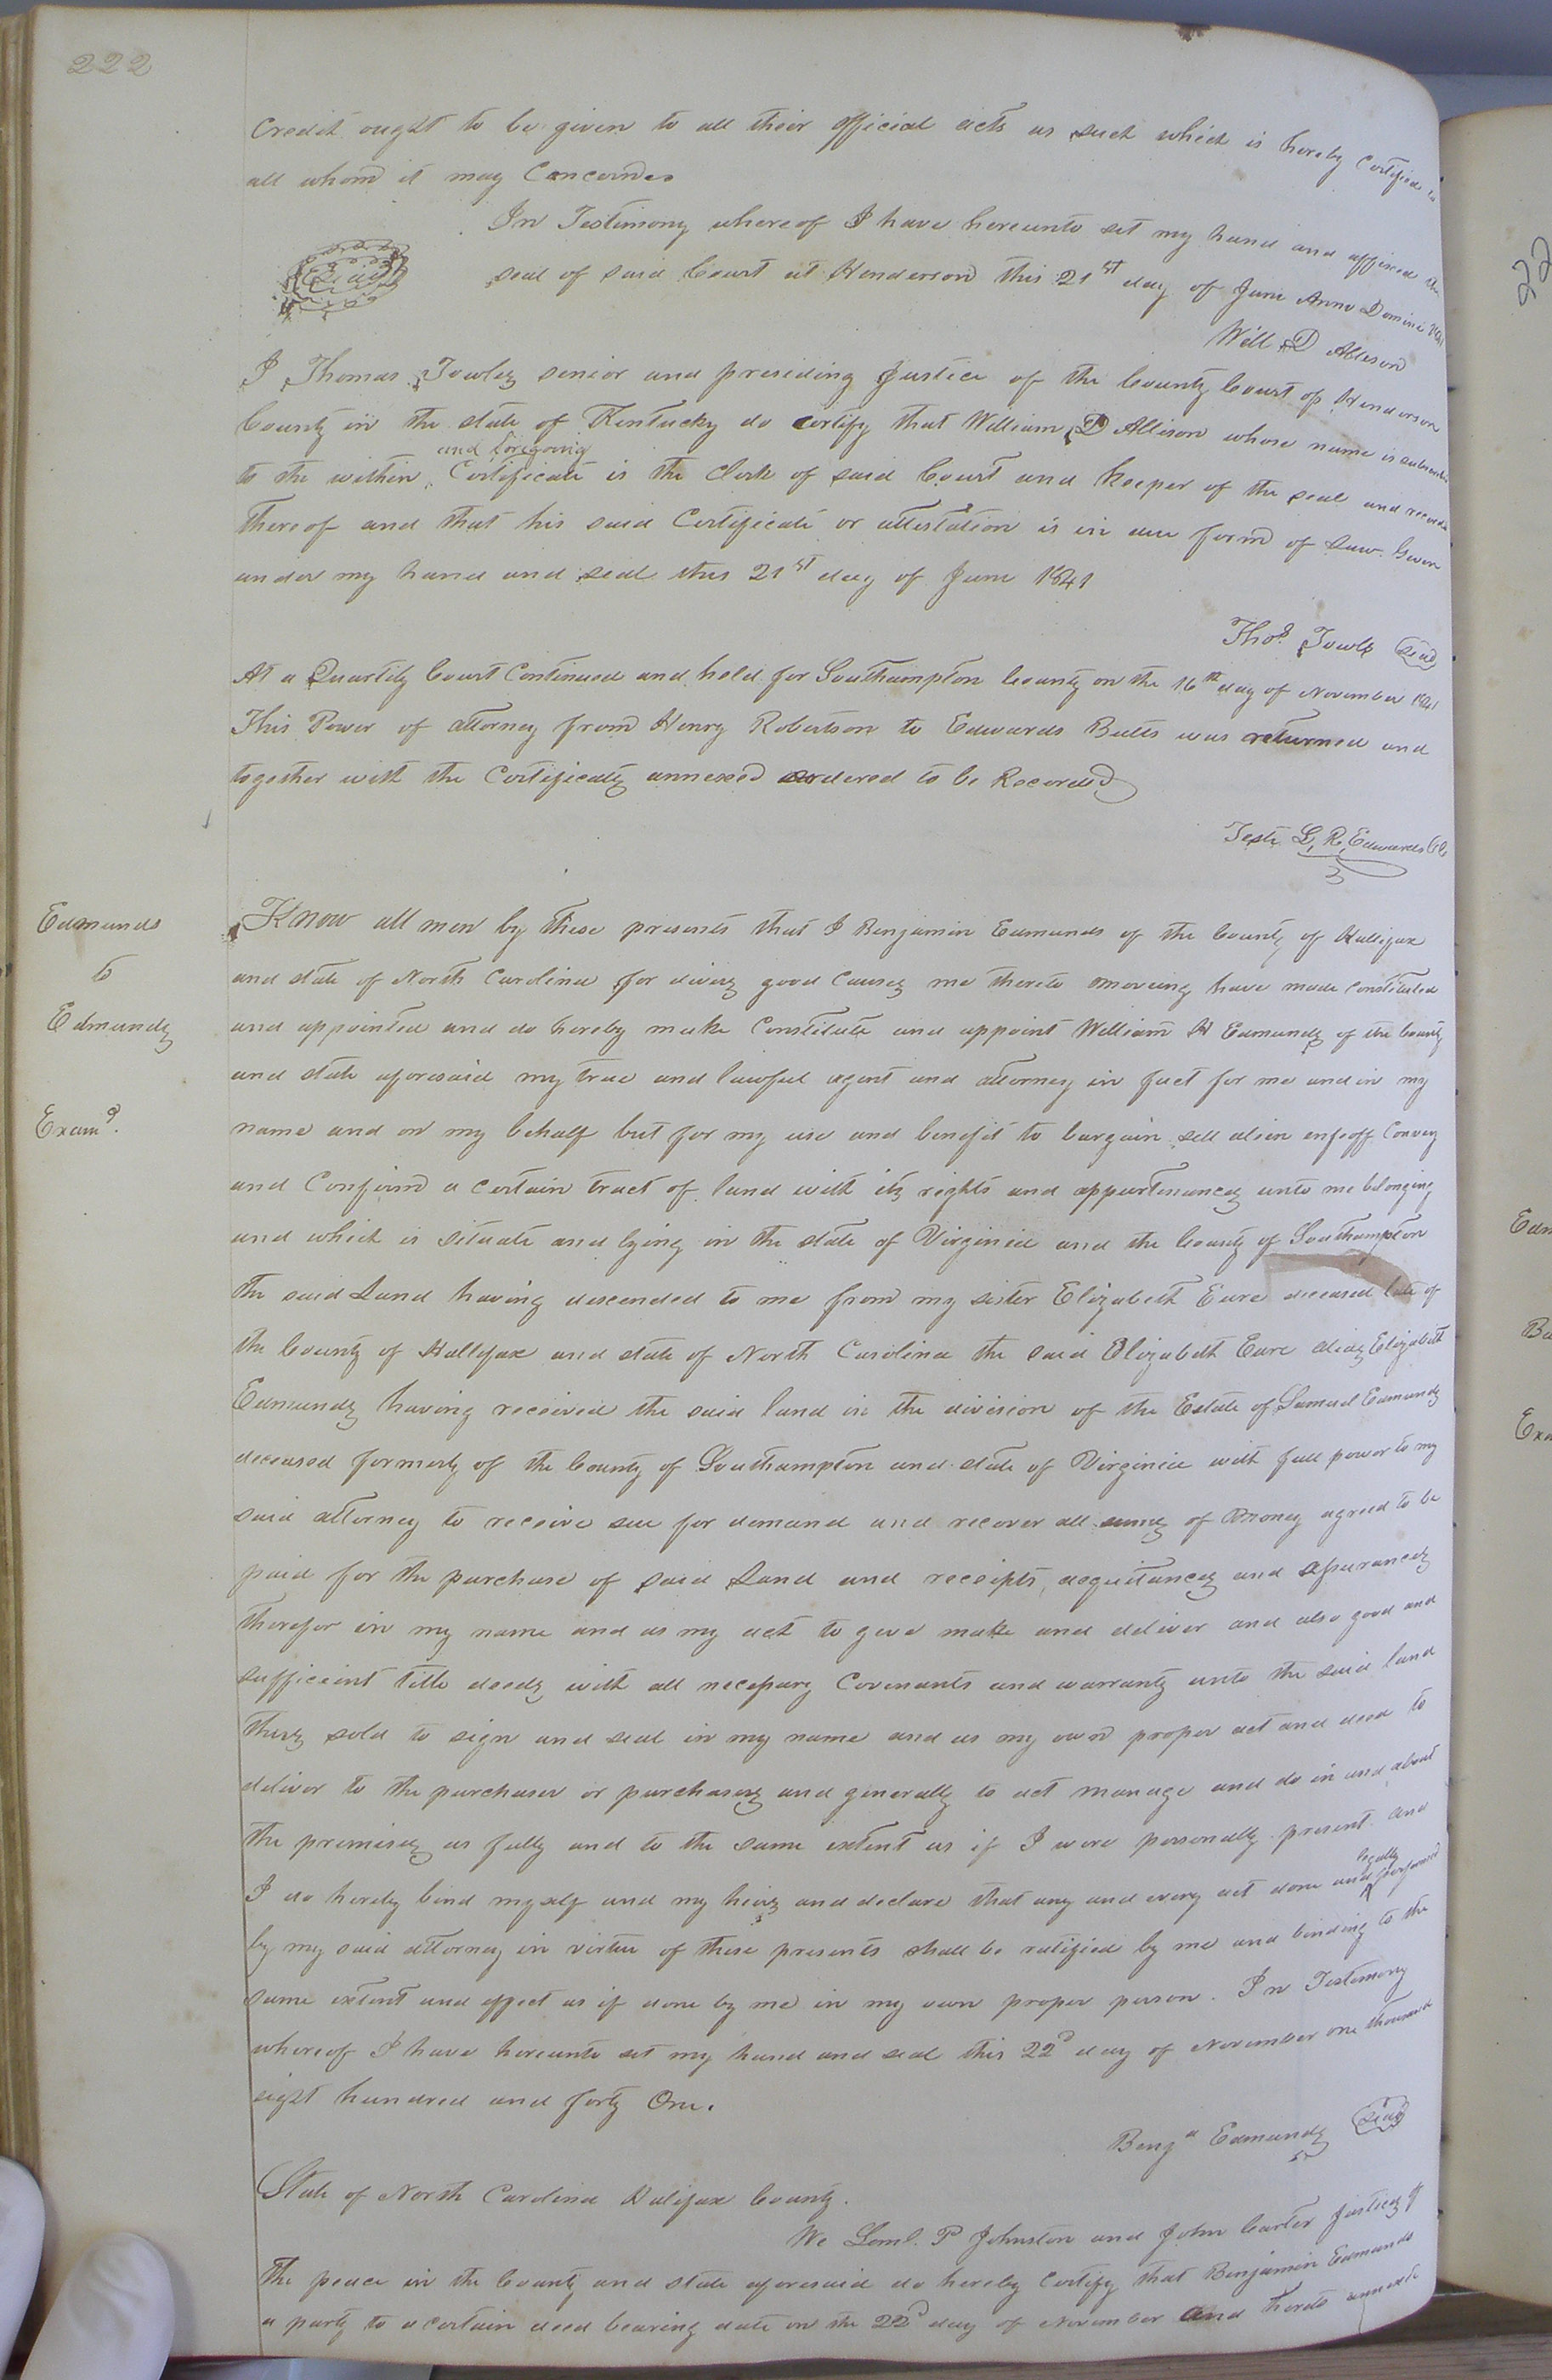 222
Credit ought to be given to all their official acts as such which is hereby Certified to
all whom it may Concern
In Testimony whereof I have hereunto set my hand and affixed the
Seal
seal of said Court at Henderson this 21st day of June Anno Domini 1841
Will D Allison
I Thomas Towles senior and presiding Justice of the County Court of Henderson
County in the state of Kentucky do certify that William D Allison whose name is
and foregoing
to the within ‸ Certificate is the Clerk of said Court and keeper of the seal and records
Thereof and that his said Certificate or attestation is in due form of Law. Given
under my hand and seal this 21st day of June 1841
Thos Towles Seal
At a Quartily Court Continued and held for Southampton County on the 16th day of November 1841
This Power of attorney from Henry Robertson to Edwards Butts was returned and
together with the Certificates annexed ordered to be Recorded
Teste L. R. Edwards Cl
Edmunds
to
Edmunds
Examd.
Know all men by these presents that I Benjamin Edmunds of the County of Hallifax
and state of North Carolina for divers good Causes me thereto moveing have made Constituted
and appointed and do hereby make Constitute and appoint William H Edmunds of the County
and state aforesaid my true and lawful agent and attorney in fact for me and in my
name and on my behalf but for my use and benefit to bargain sell alien enfeoff Convey
and Confirm a certain tract of land with its rights and appurtenances unto me belonging
and which is situate and lying in the state of Virginia and the County of Southampton
the said Land having descended to me from my sister Elizabeth Eure deceased late of
the County of Hallifax and state of North Carolina the said Elizabeth Eure alias Elizabeth
Edmunds having received the said land in the division of the Estate of Samuel Edmunds
deceased formerly of the County of Southampton and state of Virginia with full power to my
said attorney to receive sue for demand and recover all sums of Money agreed to be
paid for the purchase of said Land and receipts, acquitances and assurances
therefor in my name and as my act to give make and deliver and also good and
sufficient title deeds with all necessary Covenants and warranty unto the said land
thus sold to sign and seal in my name and as my own proper act and deed to
deliver to the purchaser or purchasers and generally to act manage and do in and about
the premises as fully and to the same extent as if I were personally present and
legally
I do hereby bind myself and my heirs and declare that any and every act done and ‸ performed
by my said attorney in virtue of these presents shall be ratified by me and binding to the
same extent and effect as if done by me in my own proper person. In Testimony
whereof I have hereunto set my hand and seal this 22d day of November one thousand
eight hundred and forty One.
Benja Edmunds Seal
State of North Carolina Halifax County.
We Leml. P Johnston and John Carter Justices of
The peace in the County and state aforesaid do hereby Certify that Benjamin Edmunds
a party to a certain deed bearing date on the 22d day of November and hereto annexed